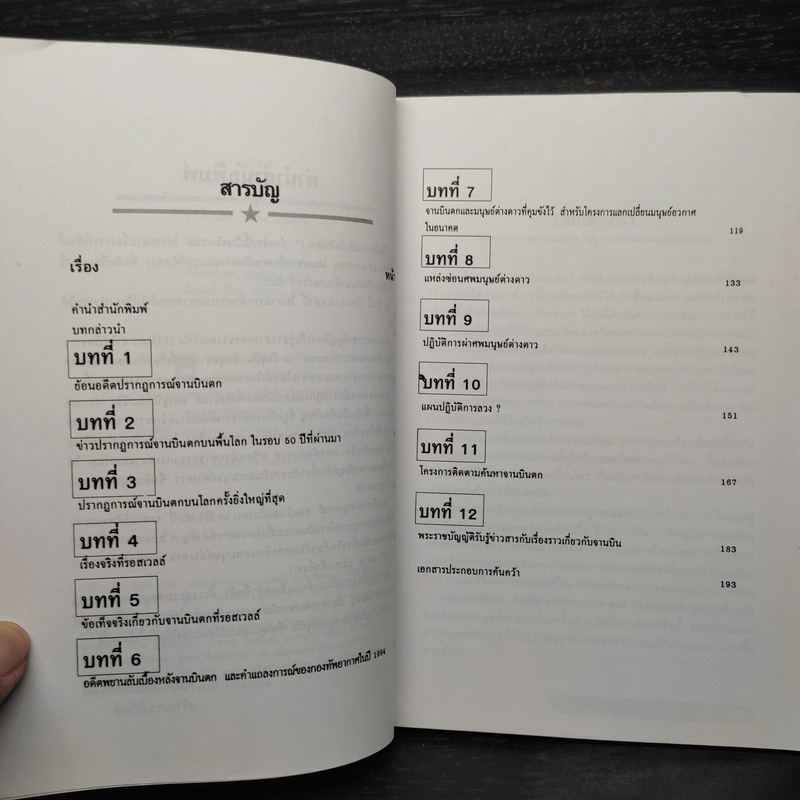 สารบัญ
เรื่อง
คำนำสำนักพิมพ์
บทกล่าวนำ
บทที่ 1
ย้อนอดีตปรากฏการณ์จานบินตก
บทที่ 2
ข่าวปรากฏการณ์จานบินตกบนพื้นโลก ในรอบ 50 ปีที่ผ่านมา
บทที่ 3
ปรากฏการณ์จานบินตกบนโลกครั้งยิ่งใหญ่ที่สุด
บทที่ 4
เรื่องจริงที่รอสเวลล์
บทที่ 5
ข้อเท็จจริงเกี่ยวกับจานบินตกที่รอสเวลล์
บทที่ 6
อดีตพยานลับเบื้องหลังจานบินตก และคำแถลงการณ์ของกองทัพอากาศในปี 1994
บทที่ 7
จานบินตกและมนุษย์ต่างดาวที่คุมขังไว้ สำหรับโครงการแลกเปลี่ยนมนุษย์อวกาศ
ในอนาคต 119
บทที่ 8
แหล่งซ่อนศพมนุษย์ต่างดาว 133
บทที่ 9
ปฏิบัติการผ่าศพมนุษย์ต่างดาว 143
บทที่ 10
แผนปฏิบัติการลวง ? 151
บทที่ 11
โครงการติดตามค้นหาจานบินตก 167
บทที่ 12
พระราชบัญญัติรับรู้ข่าวสารกับเรื่องราวเกี่ยวกับจานบิน 183
เอกสารประกอบการค้นคว้า 193